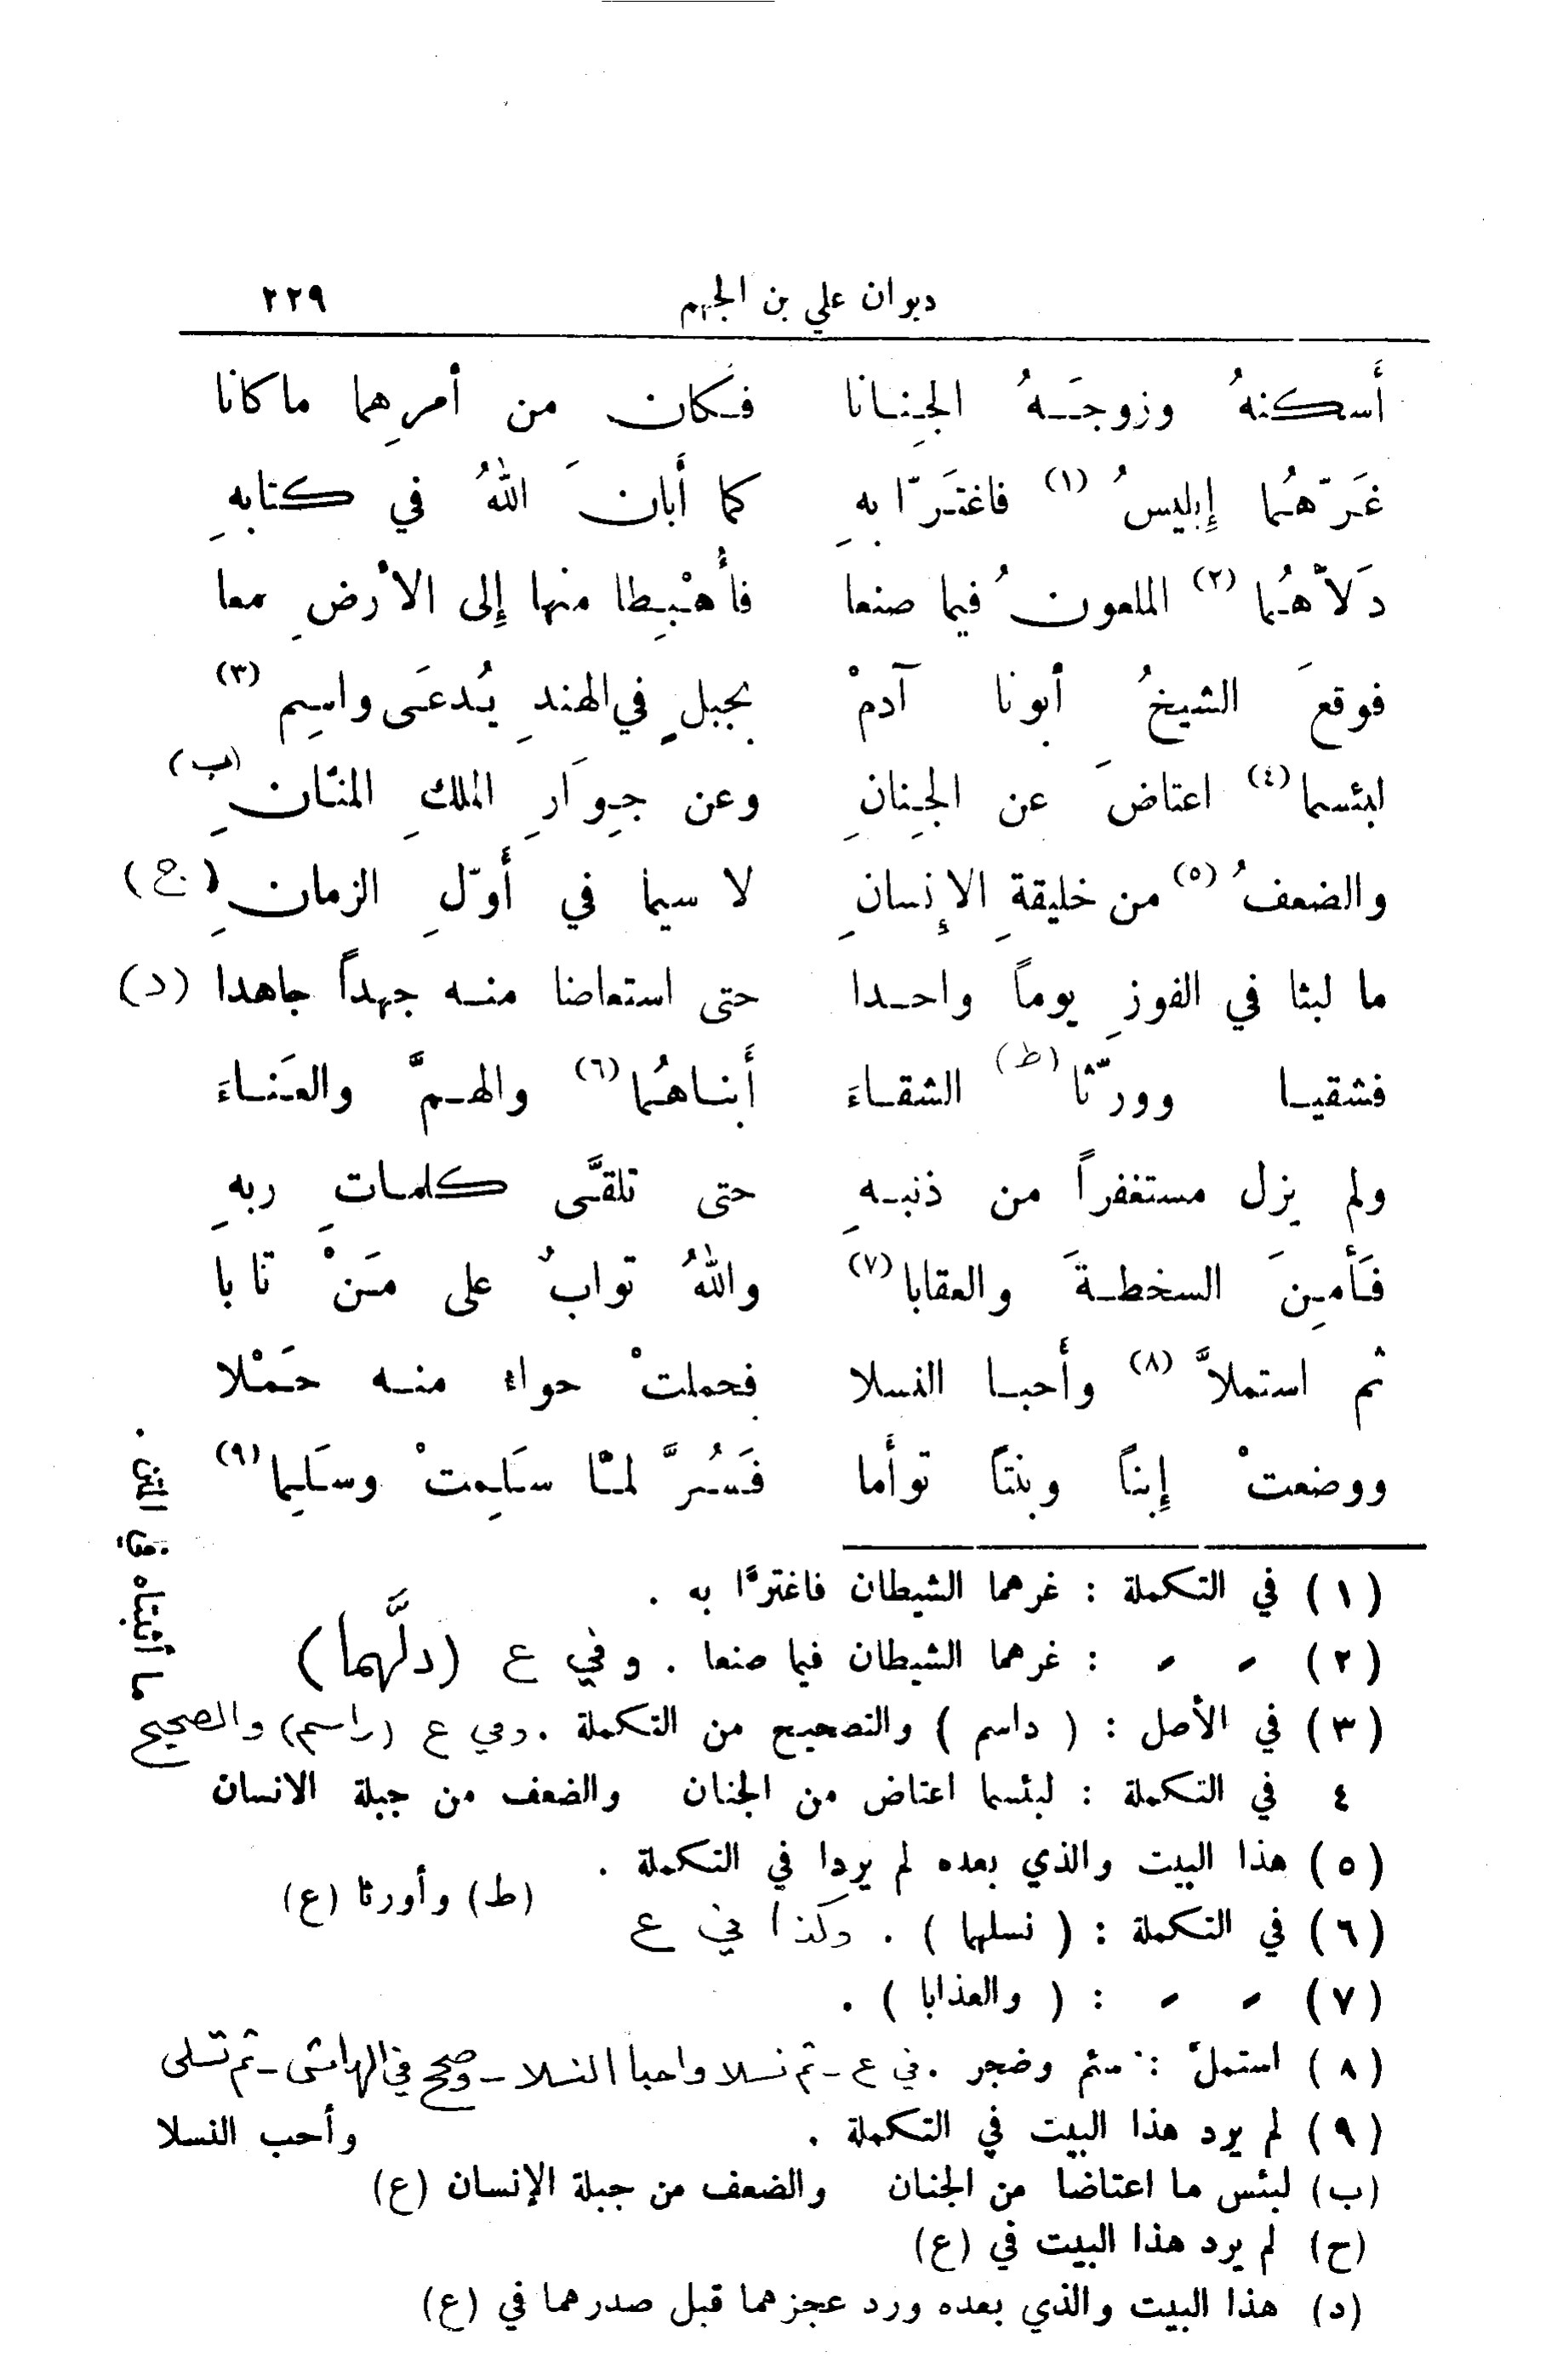 ديوان علي بن الجهم ٢٢٩
أسكنهُ وزوجَـهُ الجِنـانا فكان من أمرِهما ماكانا
غَرّهُما إِبليسُ (١) فاغتَرّا بهِ كما أَبانَ اللهُ في كتابهِ
دَلاّهُما (٢) الملعونُ فيما صنعا فأُهْبِطا منها إِلى الأرضِ معا
فوقعَ الشيخُ أبونا آدمْ بجبلٍ في الهندِ يُدعَى واسِم (٣)
لبئسما (٤) اعتاضَ عن الجِنانِ وعن جِوَارِ الملكِ المنّانِ (ب)
والضعفُ (٥) من خليقةِ الإِنسانِ لا سيما في أَوّلِ الزمانِ (ح)
ما لبثا في الفوزِ يوماً واحـدا حتى استعاضا منـه جهداً جاهدا (د)
فشقيـا وورّثا (ط) الشقـاءَ أبنـاهُما (٦) والهـمَّ والعَنـاءَ
ولم يزل مستغفراً من ذنبـهِ حتى تلقَّى كلمـاتِ ربهِ
فَأَمِنَ السخطـةَ والعقابا (٧) واللهُ توابٌ على مَنْ تابا
ثم استملاَّ (٨) وأحبـا النسلا فحملتْ حواء منـه حَمْلا
ووضعتْ إِبناً وبنتاً توأَما فَسُرَّ لمّا سَلِمتْ وسَلِما (٩)
(١) في التكملة : غرهما الشيطان فاغترّا به .
(٢) » » : غرهما الشيطان فيما صنعا . وفي ع (دلَّهما)
(٣) في الأصل : ( داسم ) والتصحيح من التكملة . وفي ع (راسم) والصحيح
ما أثبتاه في المتن .
٤ في التكملة : لبئسما اعتاض من الجنان والضعف من جبلة الانسان
(٥) هذا البيت والذي بعده لم يردا في التكملة .
(ط) وأورثا (ع)
(٦) في التكملة : ( نسلهما ) . وكذا في ع
(٧) » » : ( والعذابا ) .
(٨) استملّ : سئم وضجر . في ع - ثم نسلا واحبا النسلا - وصحح في الهامش - ثم تسلى
وأحب النسلا
(٩) لم يرد هذا البيت في التكملة .
(ب) لبئس ما اعتاضا من الجنان والضعف من جبلة الإنسان (ع)
(ح) لم يرد هذا البيت في (ع)
(د) هذا البيت والذي بعده ورد عجزهما قبل صدرهما في (ع)